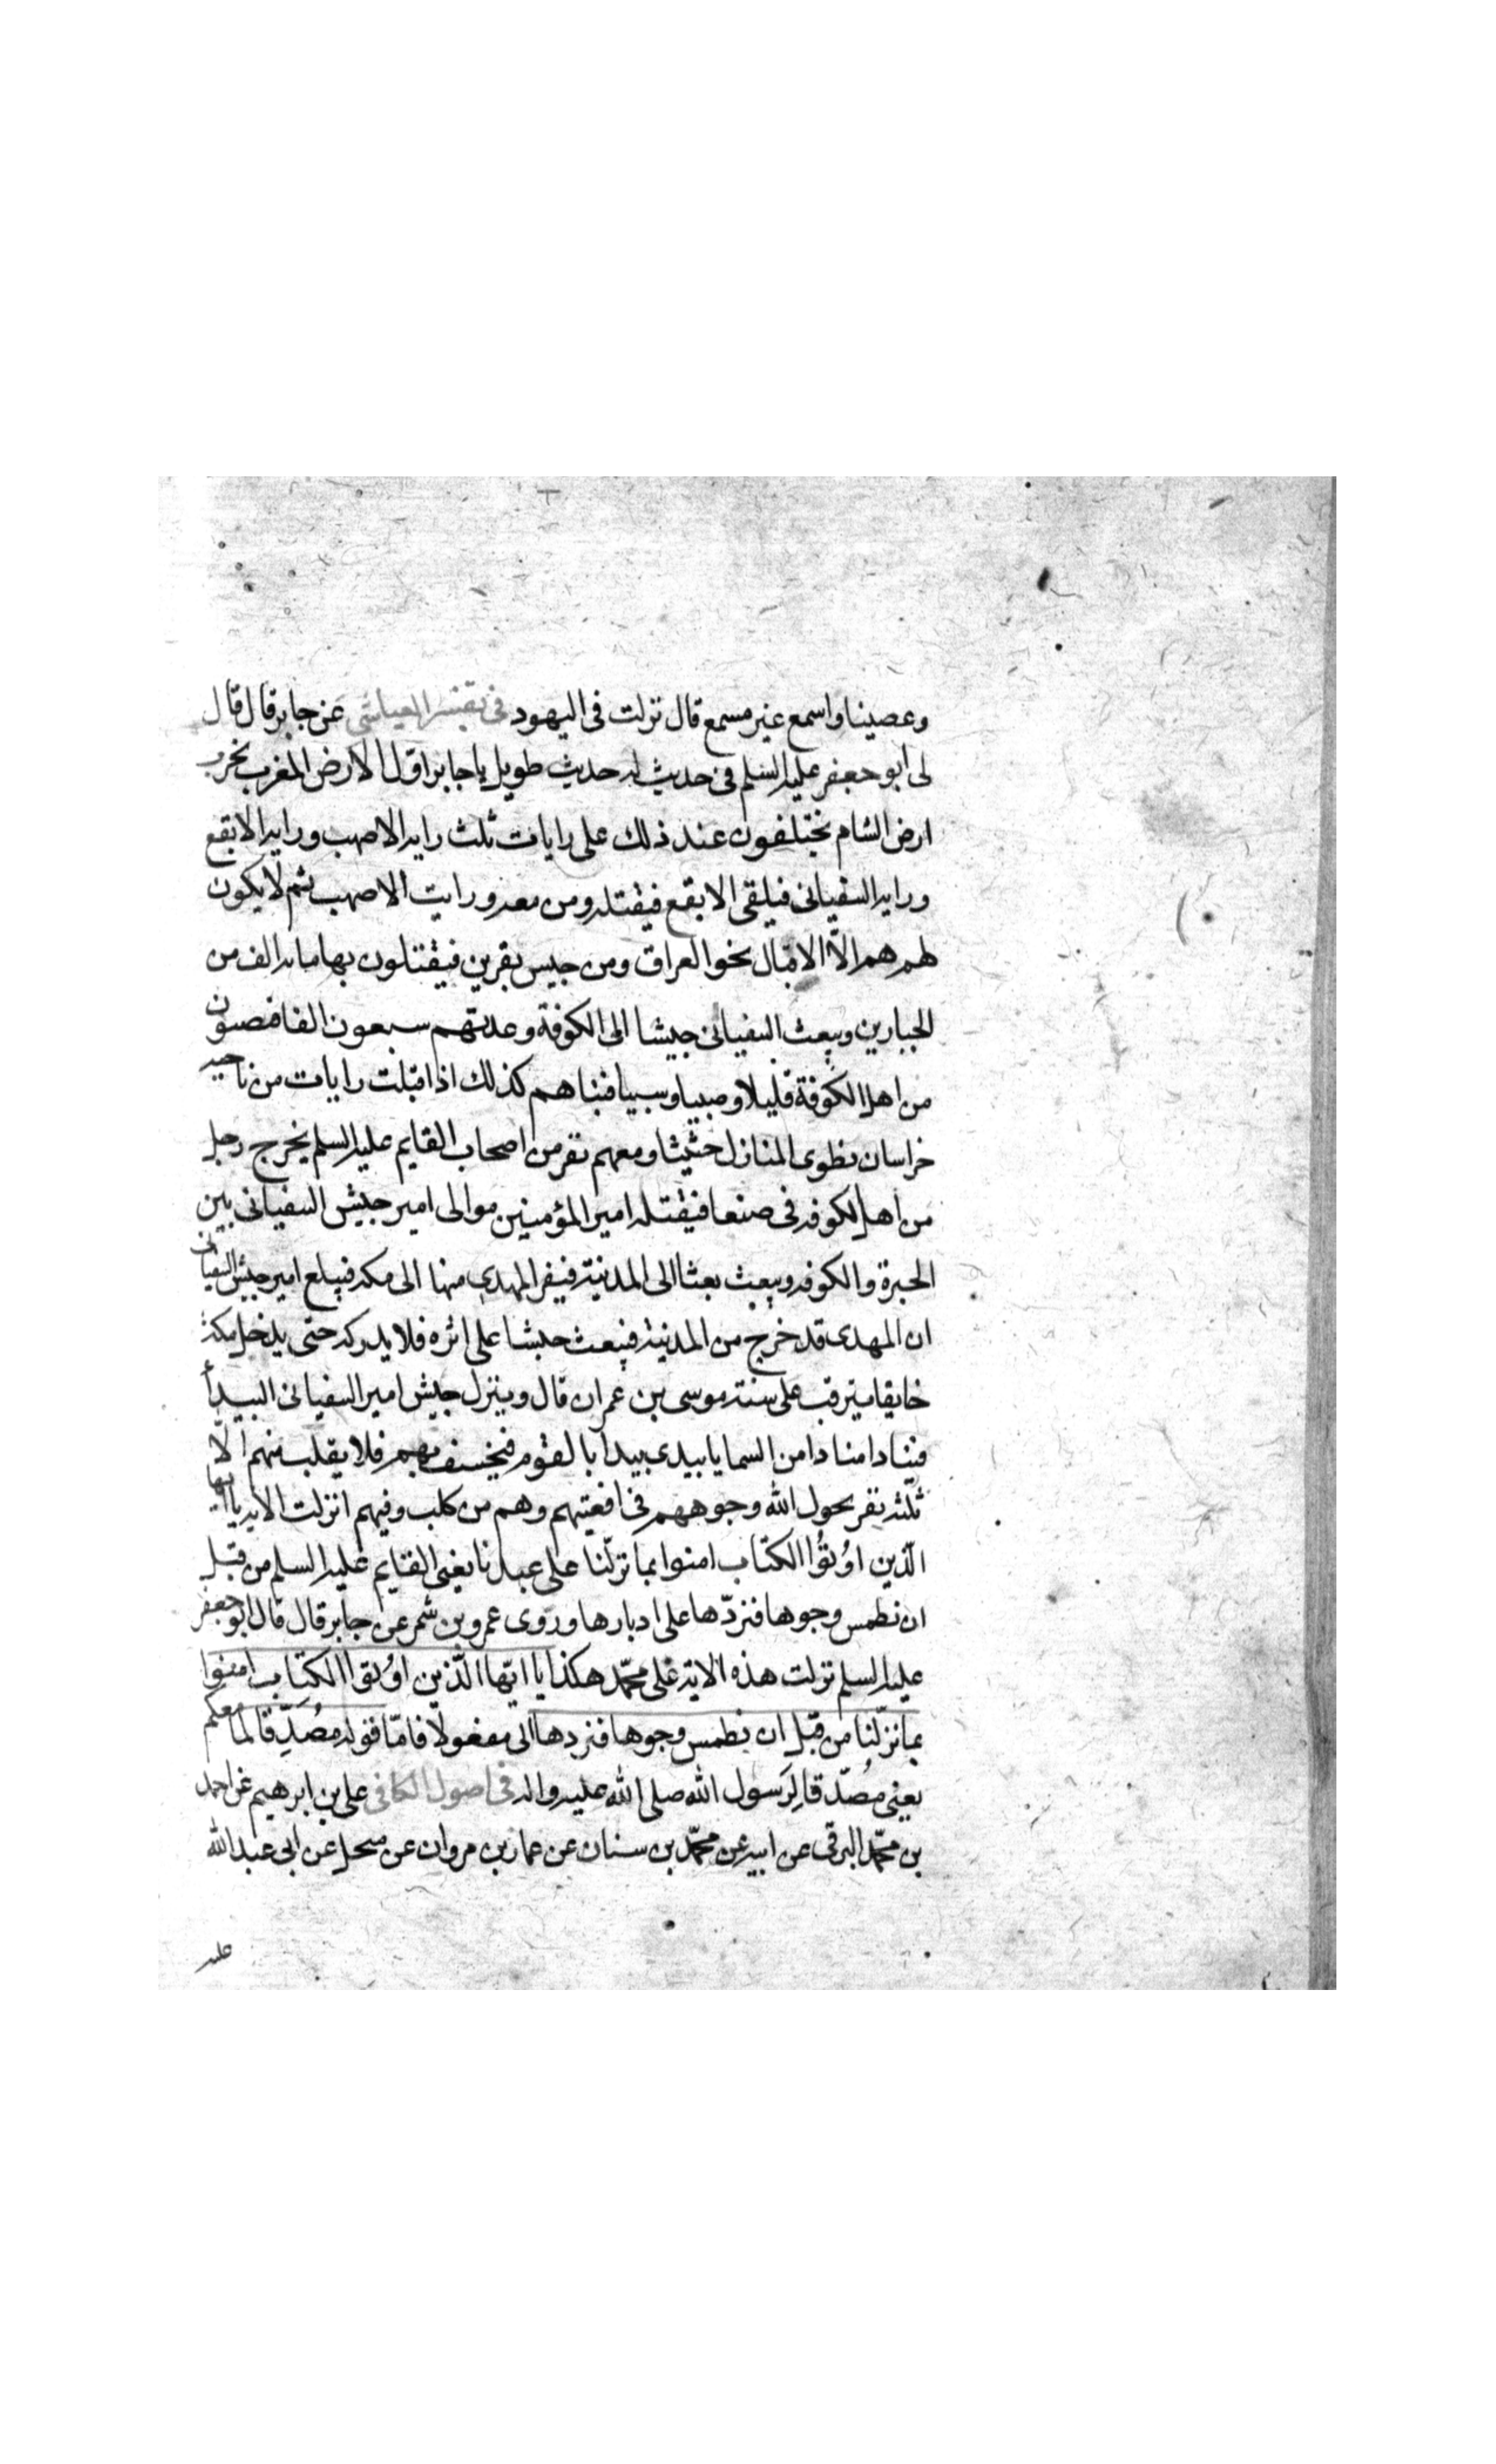 وعصينا واسمع غير مسمع قال نزلت فى اليهود فى تفسير العياشى عن جابر قال قال
لى ابو جعفر عليه السلم فى حديث له حديث طويل يا جابر اول الارض المغرب تخرب
ارض الشام يختلفون عند ذلك على رايات ثلث رايه الاصهب ورايه الابقع
ورايه السفيانى فيلقى الابقع فيقتله ومن معه ورايت الاصهب ثم لا يكون
لهم هم الّا الاقبال نحو العراق ومن جيس بقرين فيقتلون بها مايه الف من
الجبارين ويبعث السفيانى جيشا الى الكوفة وعدتهم سبعون الفا فيصيبون
من اهل الكوفة قتيلا وصبيا وسبيا فبيناهم كذلك اذا قبلت رايات من ناحيه
خراسان تطوى المنازل حثيثا ومعهم نفر من اصحاب القايم عليه السلم يخرج رجل
من اهل لكوفه فى صنعا فيقتله امير المؤمنين موالى امير جيش السفيانى بين
الحيرة والكوفه ويبعث بعثا الى المدنية فيفر المهدى منها الى مكه فيبلغ امير جيش السفيانى
ان المهدى قد خرج من المدنية فيبعث جيشا على اثره فلا يدركه حتى يدخل مكة
خايفا يترقب على سنة موسى بن عمران قال وينزل جيش امير السفيانى البيدأ
فينادا منادا من السما يا بيدى بيدا بالقوم فيخسف بهم فلا يقلب منهم الّا
ثلثه نفر يحول الله وجوههم فى اقعيتهم وهم من كلب وفيهم انزلت الايه يا ايها
الّذين اوُتوُا الكتاب امنوا بما نزّلنا على عبدنا يعنى القايم عليه السلم من قبل
ان نطمس وجوها فنردّها على ادبارها وروى عمرو بن شمر عن جابر قال قال ابو جعفر
عليه السلم نزلت هذه الاية على محمّد هكذا يا ايّها الّذين اوُتوا الكتاب امنوا
بما نزّلنا من قبل ان نطمس وجوها فنردها الى مفعولا فامّا قوله مصُدّقا لما معكم
يعنى مصُدّقا لرَسول الله صلى الله عليه واله فى اصول الكافى على بن ابرهيم عن احمد
بن محمّد البرقى عن ابيه عن محمّد بن سنان عن عمار بن مروان عن منخل عن ابى عبد الله
عليه